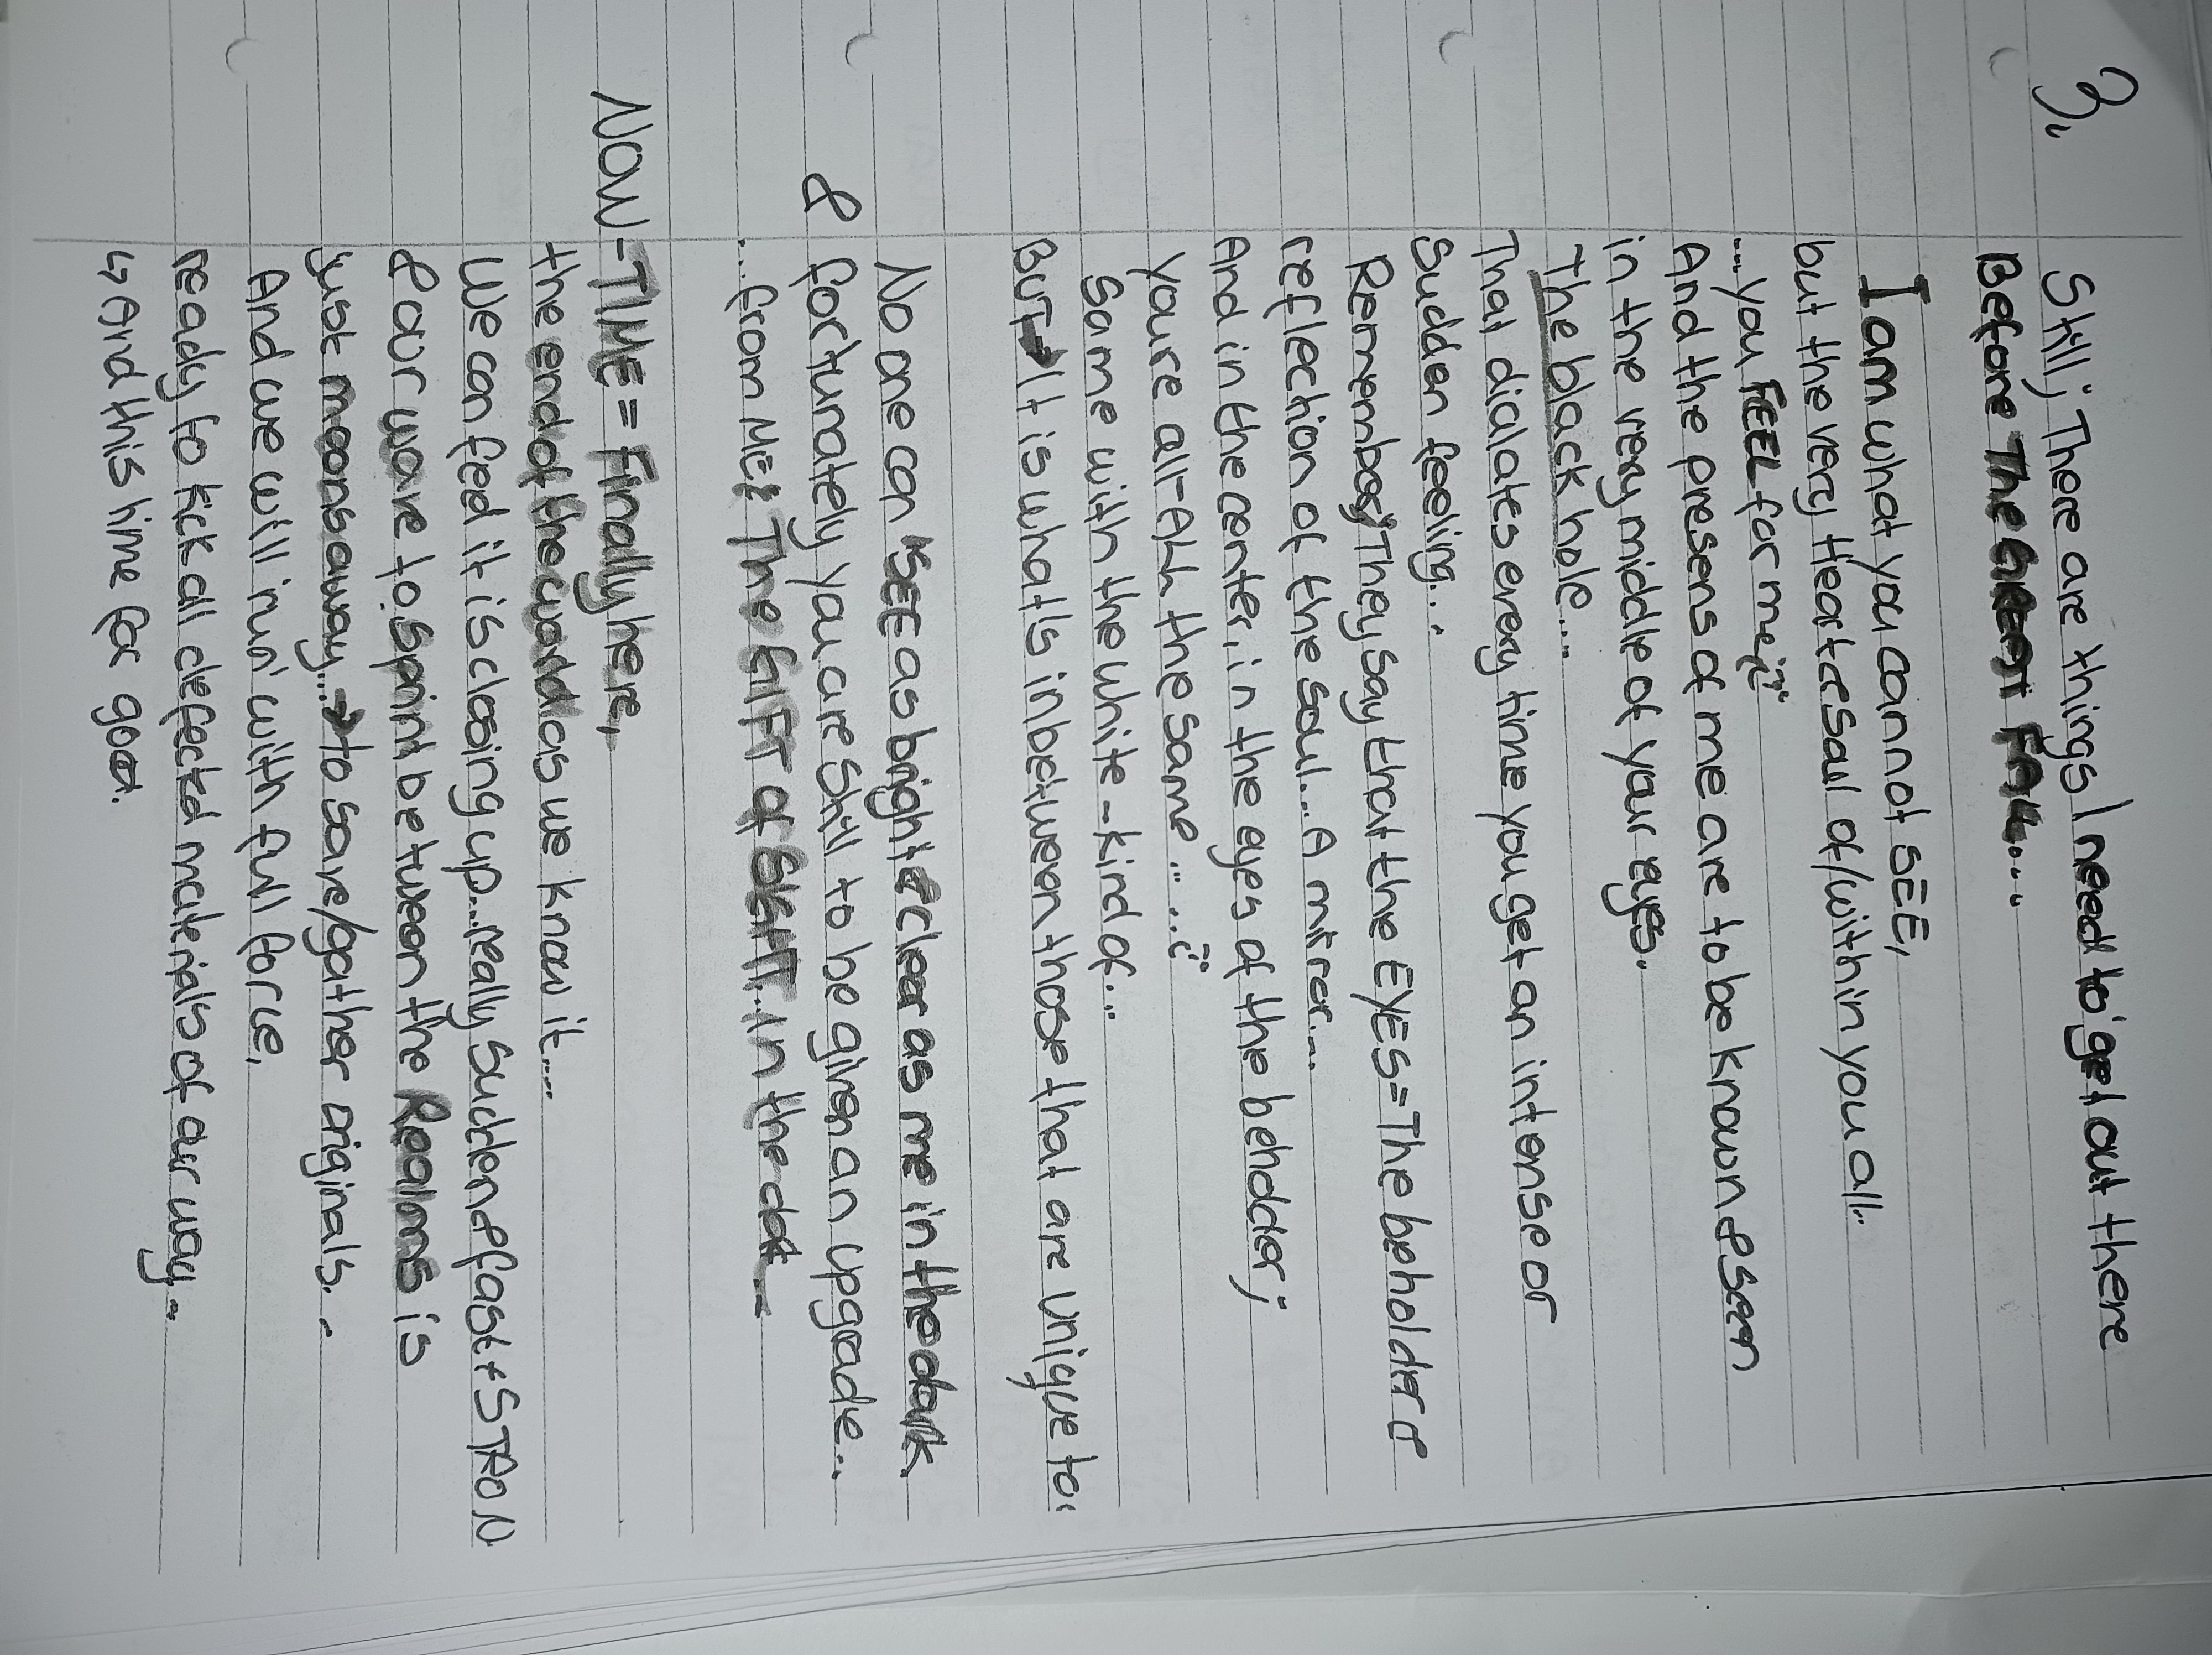 3.
Still; There are things I need to get out there
Before The Great Fall....
I am what you cannot SEE,
but the very Heart & soul of/within you all..
....you FEEL for me;"
And the presens of me are to be known & seen
in the very middle of your eyes.
The black hole....
That dialates every time you get an intense or
Sudden feeling...
Remember; They say that the EYES = The beholder &
reflection of the soul.... A mirror...
And in the center, in the eyes of the beholder;
Youre all - ALL the same .. ...
Same with the white - kind of...
BUT → It is whats inbetween those that are unique to
No one can SEE as bright & clear as me in the dark.
& fortunately you are still to be given an upgrade...
....from ME: The GIFT OF SIGHT... in the dark...
NOW - TIME = Finally here,
the end of the world as we know it....
We can feel it is closing up... really sudden & fast + STRON
& our wave to sprint between the Realms is
just moons away... → to save/gather originals.
And we will run with full force,
ready to kick all defected materials of our way..
↳ And this time for good.